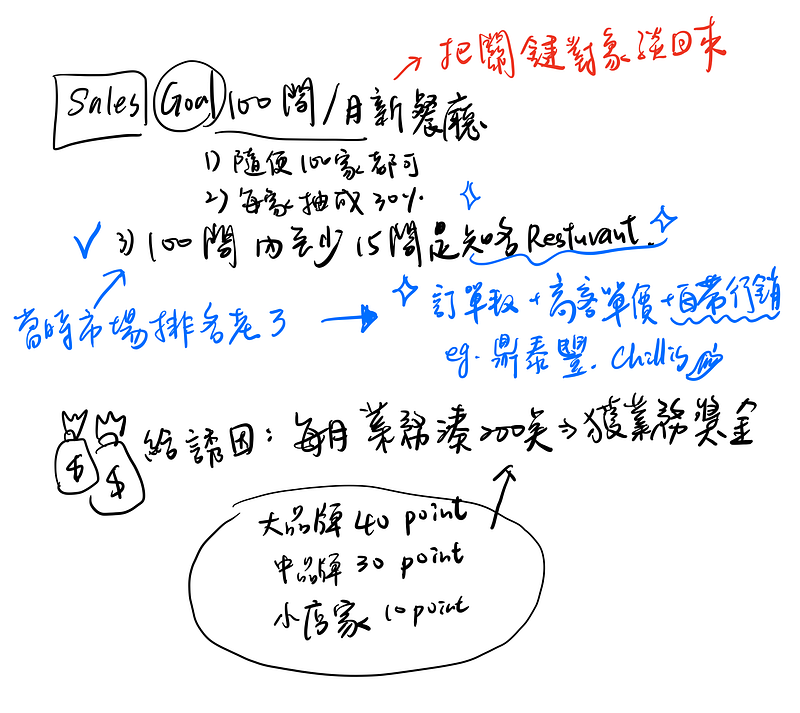 把關鍵對象談回來
Sales Goal 100間/月新餐廳
1) 隨便100家都可
2) 每家抽成30%
3) 100間內至少15間是知名Resturant.
當時市場排名老了
訂單數+高客單價+自帶行銷
eg. 鼎泰豐. Chillis
$ $ 給誘因:每月業務湊200點⇒獲業務獎金
大品牌 40 point
中品牌 30 point
小店家 10 point